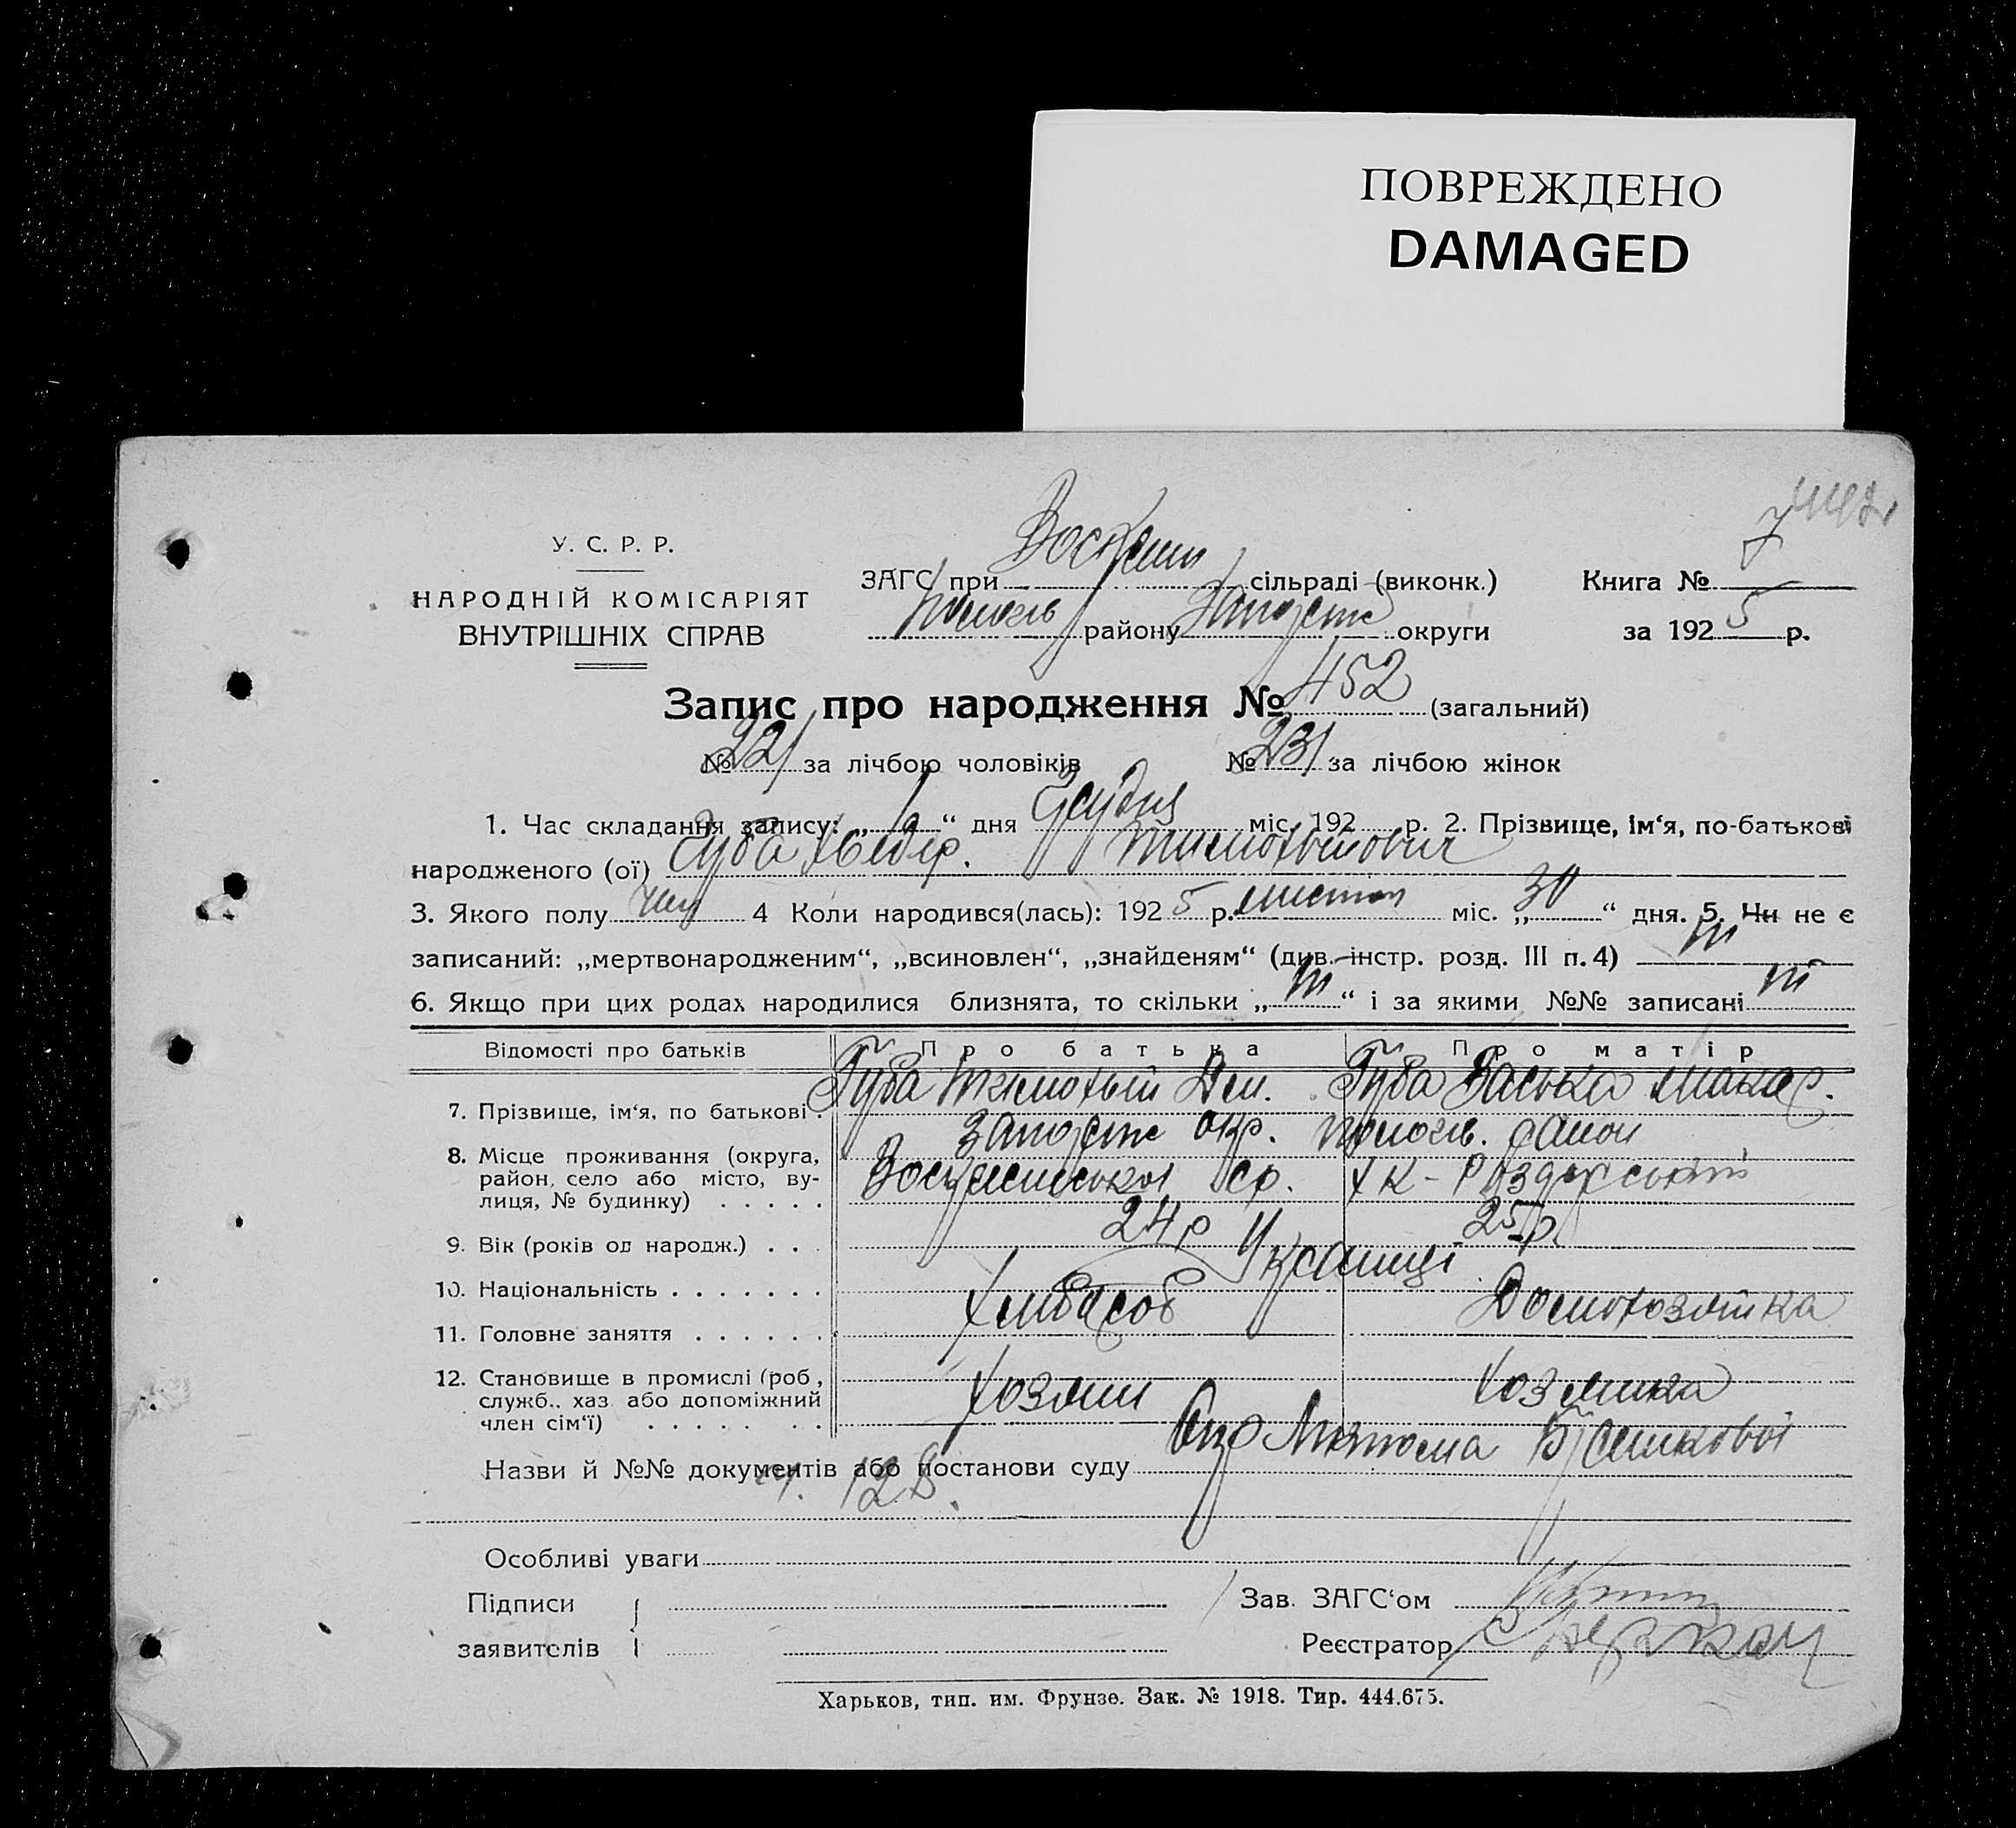 ПОВРЕЖДЕНО
DAMAGED
У. С. Р. Р.
НАРОДНІЙ КОМІСАРІЯТ
ВНУТРІШНІХ СПРАВ
ЗАГС при сільраді (виконк.)
району округи
Книга № 7
за 1925 р.
Запис про народження № 452 (загальний)
№ 221 за лічбою чоловіків № 231 за лічбою жінок
1. Час складання запису: „ “ дня Грудня міс. 192 р. 2. Прізвище, ім‘я, по-батькові
народженого (ої) Губа Тимохвійович
3. Якого полу чол 4 Коли народився(лась): 1925 р. листоп міс. „30“ дня. 5. Чи не є
записаний: „мертвонародженим“, „всиновлен“, „знайденям“ (див. інстр. розд. III п. 4) ні
6. Якщо при цих родах народилися близнята, то скільки „ні“ і за якими №№ записані ні
Відомості про батьків Про батька Про матір
7. Прізвище, ім‘я, по батькові . Губа Тимохвій Дем. Губа Васька Макар.
8. Місце проживання (округа, район, село або місто, вулиця, № будинку) . . . . . Запоріж окр. Пологів. район
Воскресенської ср.
9. Вік (років од народж.) . . . 24 р 25 р
10. Національність . . . . . . . Українці
11. Головне заняття . . . . . . Хлібороб Домохозяйка
12. Становище в промислі (роб., служб., хаз. або допоміжний член сім‘ї) . . . . . . . Хозяин Хозяйка
Назви й №№ документів або постанови суду
128.
Особливі уваги
Підписи заявителів
Зав. ЗАГС‘ом
Реєстратор
Харьков, тип. им. Фрунзе. Зак. № 1918. Тир. 444.675.